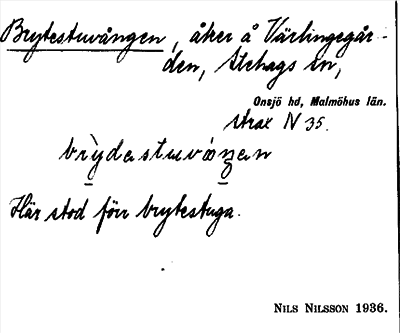 Brytestuvången, åker å Värlingegår-
den, Stehags sn,
Onsjö hd, Malmöhus län.
strax N 35.
brỳdastuvåŋan
Här stod förr brytestuga.
NILS NILSSON 1936.